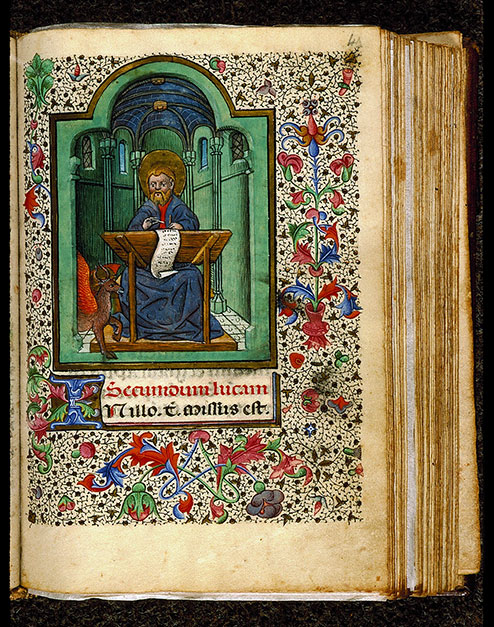 Secundum lucam
In illo. t. missus est.